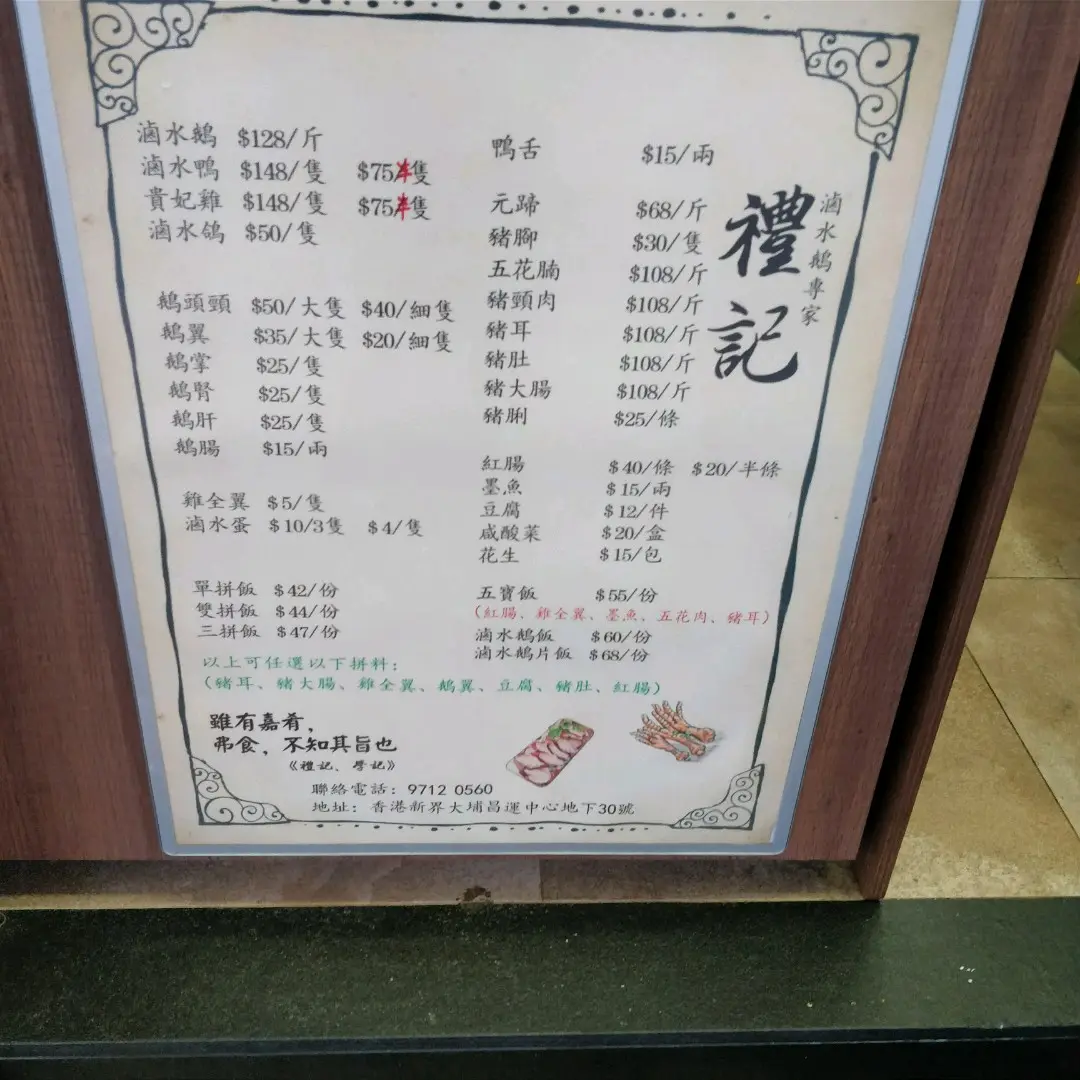 滷水鵝 $128/斤
滷水鴨 $148/隻 $75半隻
貴妃雞 $148/隻 $75半隻
滷水鴿 $50/隻
鵝頭頸 $50/大隻 $40/細隻
鵝翼 $35/大隻 $20/細隻
鵝掌 $25/隻
鵝腎 $25/隻
鵝肝 $25/隻
鵝腸 $15/兩
雞全翼 $5/隻
滷水蛋 $10/3隻 $4/隻
單拼飯 $42/份
雙拼飯 $44/份
三拼飯 $47/份
以上可任選以下拼料：
（豬耳、豬大腸、雞全翼、鵝翼、豆腐、豬肚、紅腸）
鴨舌 $15/兩
元蹄 $68/斤
豬腳 $30/隻
五花腩 $108/斤
豬頸肉 $108/斤
豬耳 $108/斤
豬肚 $108/斤
豬大腸 $108/斤
豬脷 $25/條
紅腸 $40/條 $20/半條
墨魚 $15/兩
豆腐 $12/件
咸酸菜 $20/盒
花生 $15/包
五寶飯 $55/份
（紅腸、雞全翼、墨魚、五花肉、豬耳）
滷水鵝飯 $60/份
滷水鵝片飯 $68/份
滷水鵝專家
禮記
雖有嘉肴，
弗食，不知其旨也
《禮記、學記》
聯絡電話：9712 0560
地址：香港新界大埔昌運中心地下30號